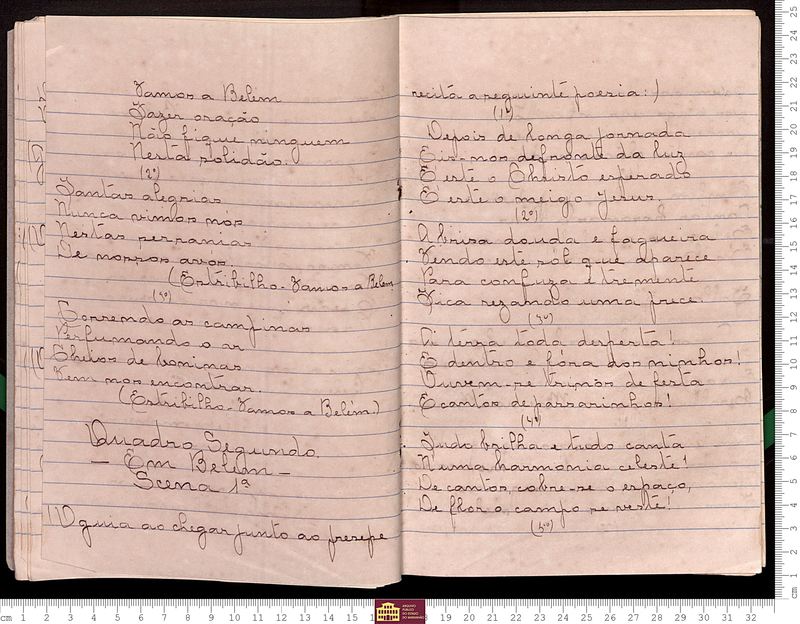 Vamos a Belém
Fazer oração
Não fique ninguem
Nesta solidão.
(2º)
Tantas alegrias
Nunca vimos nós
Nestas serranias
De nossos avos.
(Estribilho - Vamos a Belém
(3º)
Correndo as campinas
Perfumando o ar
Cheios de boninas
Vem nos encontrar.
(Estribilho - Vamos a Belém.)
Quadro Segundo.
- Em Belém -
Scena 1ª
(O guia ao chegar junto ao presepe
recitá a seguinte poesia:)
(1º)
Depois de longa jornada
Eis-nos defronte da luz
E este o Christo esperado
E este o meigo Jesus.
(2º)
A brisa douda e fagueira
Vendo este sol que aparece
Para confuza e tremente
Fica rezando uma prece.
(3º)
A terra toda desperta!
E dentro e fóra dos ninhos!
Ouvem-se trinos de festa
E cantos de passarinhos!
(4º)
Tudo brilha e tudo canta
N'uma harmonia celeste!
De cantos, cobre-se o espaço,
De flor o campo se veste!
(5º)
ARQUIVO PÚBLICO DO ESTADO DO MARANHÃO